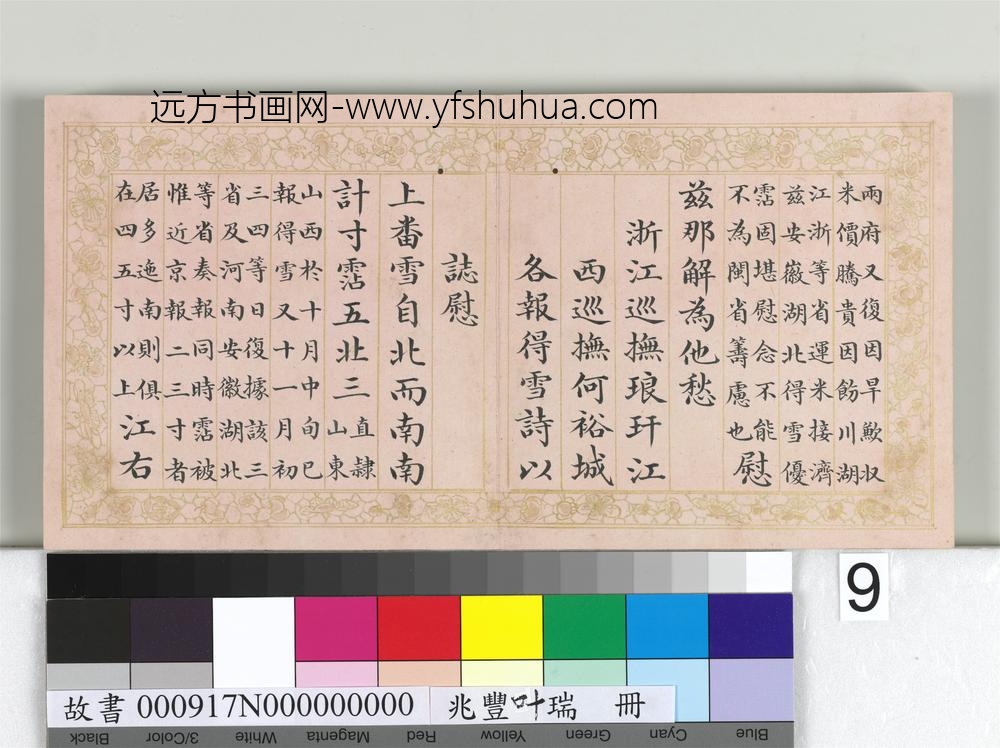 远方书画网-www.yfshuhua.com
兩府又復因旱歉収
米價騰貴因飭川湖
江浙等省運米接濟
兹安徽湖北得雪優
霑固堪慰念不能
不為閩省籌慮也
慰
兹那解為他愁
浙江巡撫琅玕江
西巡撫何裕城
各報得雪詩以
誌慰
上畨雪自北而南南
計寸霑五北三
直隸
山東
山西於十月中旬已
報得雪又十一月初
三四等日復據該三
省及河南安徽湖北
等省奏報同時霑被
惟近京報二三寸者
居多迤南則俱
在四五寸以上
江右
9
故書 000917N000000000 兆豐叶瑞 冊
Black 3/Color White Magenta Red Yellow Green Cyan Blue